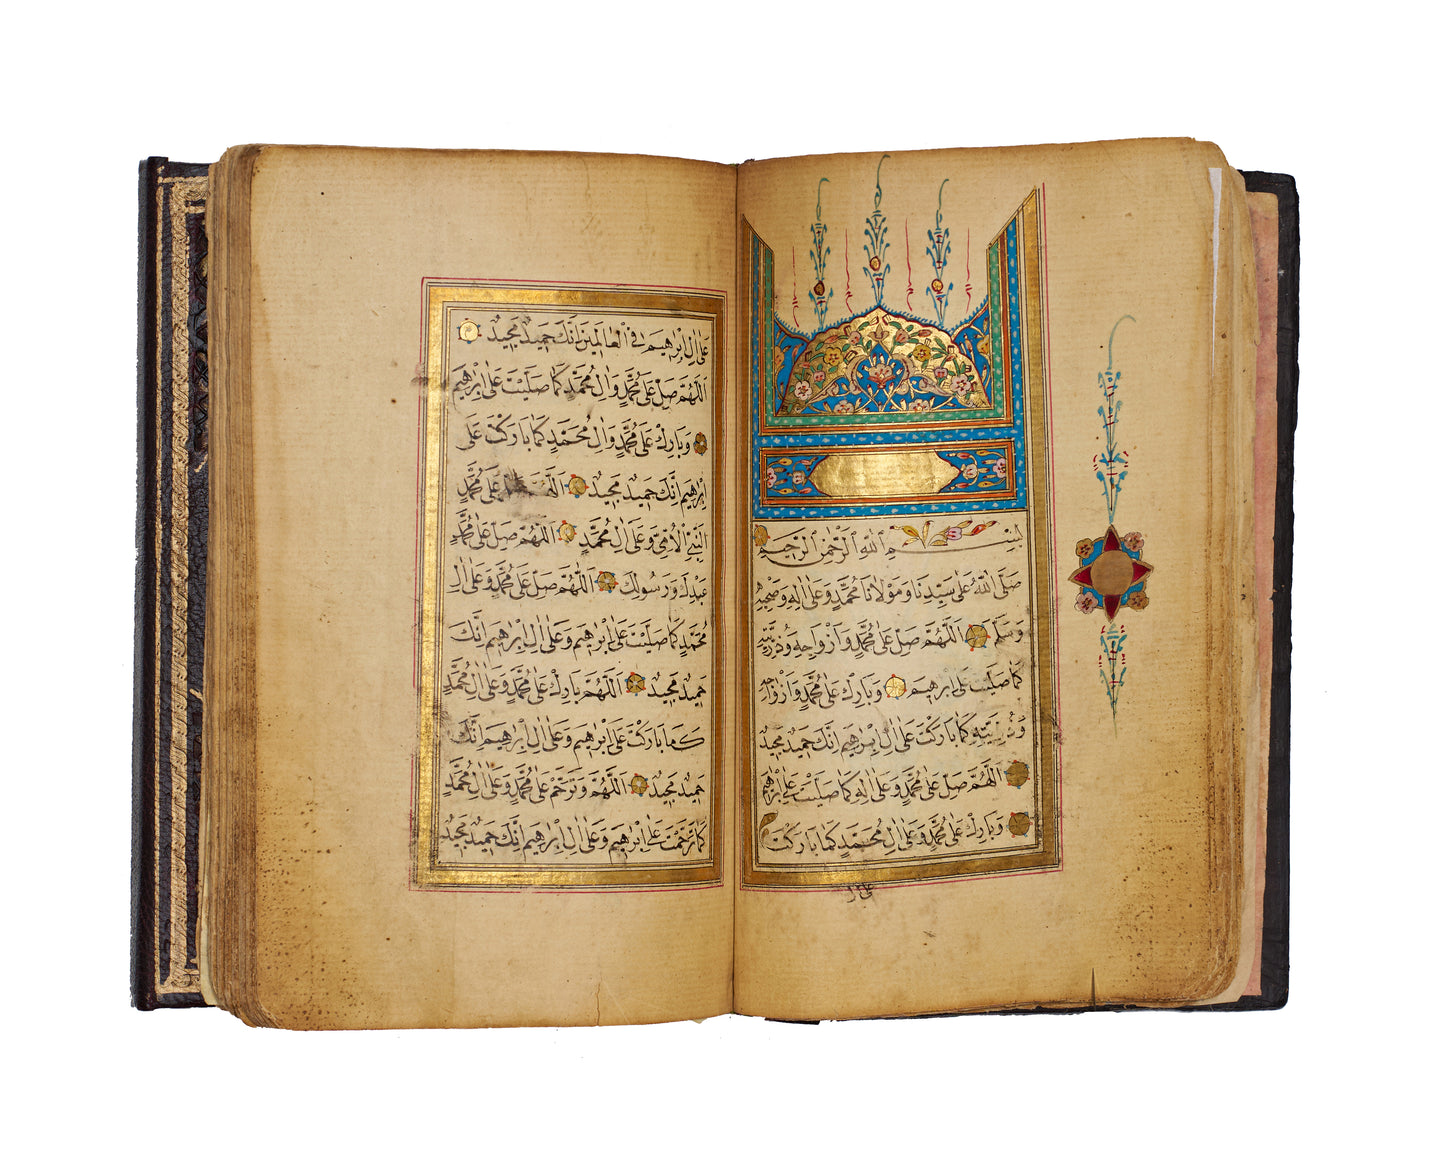 بِسْمِ اللهِ الرَّحْمٰنِ الرَّحِيمِ
صَلَّى اللهُ عَلٰى سَيِّدِنَا وَمَوْلَانَا مُحَمَّدٍ وَعَلٰى اٰلِهِ وَصَحْبِهِ
وَسَلَّمَ اَللّٰهُمَّ صَلِّ عَلٰى مُحَمَّدٍ وَاَزْوَاجِهِ وَذُرِّيَّتِهِ
كَمَا صَلَّيْتَ عَلٰى اِبْرٰهِيمَ وَبَارِكْ عَلٰى مُحَمَّدٍ وَاَزْوَاجِهِ
وَذُرِّيَّتِهِ كَمَا بَارَكْتَ عَلٰى اٰلِ اِبْرٰهِيمَ اِنَّكَ حَمِيدٌ مَجِيدٌ
اَللّٰهُمَّ صَلِّ عَلٰى مُحَمَّدٍ وَعَلٰى اٰلِهِ كَمَا صَلَّيْتَ عَلٰى اِبْرٰهِيمَ
وَبَارِكْ عَلٰى مُحَمَّدٍ وَعَلٰى اٰلِ مُحَمَّدٍ كَمَا بَارَكْتَ
على ال
عَلٰى اٰلِ اِبْرٰهِيمَ فِي الْعَالَمِينَ اِنَّكَ حَمِيدٌ مَجِيدٌ
اَللّٰهُمَّ صَلِّ عَلٰى مُحَمَّدٍ وَاٰلِ مُحَمَّدٍ كَمَا صَلَّيْتَ عَلٰى اِبْرٰهِيمَ
وَبَارِكْ عَلٰى مُحَمَّدٍ وَاٰلِ مُحَمَّدٍ كَمَا بَارَكْتَ عَلٰى
اِبْرٰهِيمَ اِنَّكَ حَمِيدٌ مَجِيدٌ اَللّٰهُمَّ عَلٰى مُحَمَّدٍ
النَّبِيِّ الْاُمِّيِّ وَعَلٰى اٰلِ مُحَمَّدٍ اَللّٰهُمَّ صَلِّ عَلٰى مُحَمَّدٍ
عَبْدِكَ وَرَسُولِكَ اَللّٰهُمَّ صَلِّ عَلٰى مُحَمَّدٍ وَعَلٰى اٰلِ
مُحَمَّدٍ كَمَا صَلَّيْتَ عَلٰى اِبْرٰهِيمَ وَعَلٰى اٰلِ اِبْرٰهِيمَ اِنَّكَ
حَمِيدٌ مَجِيدٌ اَللّٰهُمَّ بَارِكْ عَلٰى مُحَمَّدٍ وَعَلٰى اٰلِ مُحَمَّدٍ
كَمَا بَارَكْتَ عَلٰى اِبْرٰهِيمَ وَعَلٰى اٰلِ اِبْرٰهِيمَ اِنَّكَ
حَمِيدٌ مَجِيدٌ اَللّٰهُمَّ وَتَرَحَّمْ عَلٰى مُحَمَّدٍ وَعَلٰى اٰلِ مُحَمَّدٍ
كَمَا تَرَحَّمْتَ عَلٰى اِبْرٰهِيمَ وَعَلٰى اٰلِ اِبْرٰهِيمَ اِنَّكَ حَمِيدٌ مَجِيدٌ